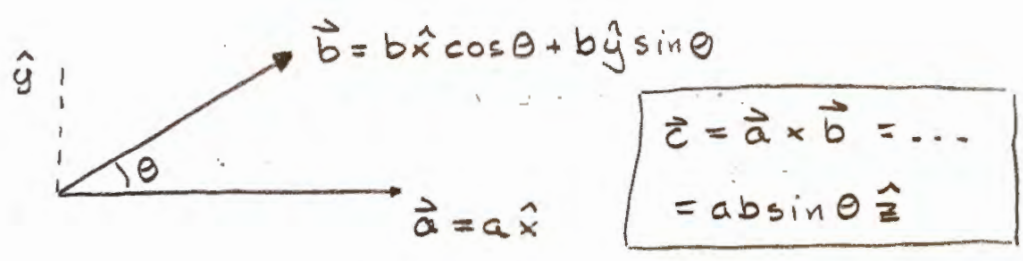 b⃗ = b x̂ cos θ + b ŷ sin θ
ŷ
θ
a⃗ = a x̂
c⃗ = a⃗ × b⃗ = ...
= ab sin θ ẑ